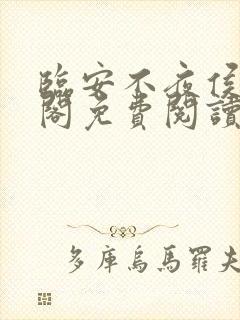 臨安不夜侯
閣免費閱讀
多庫烏馬羅夫